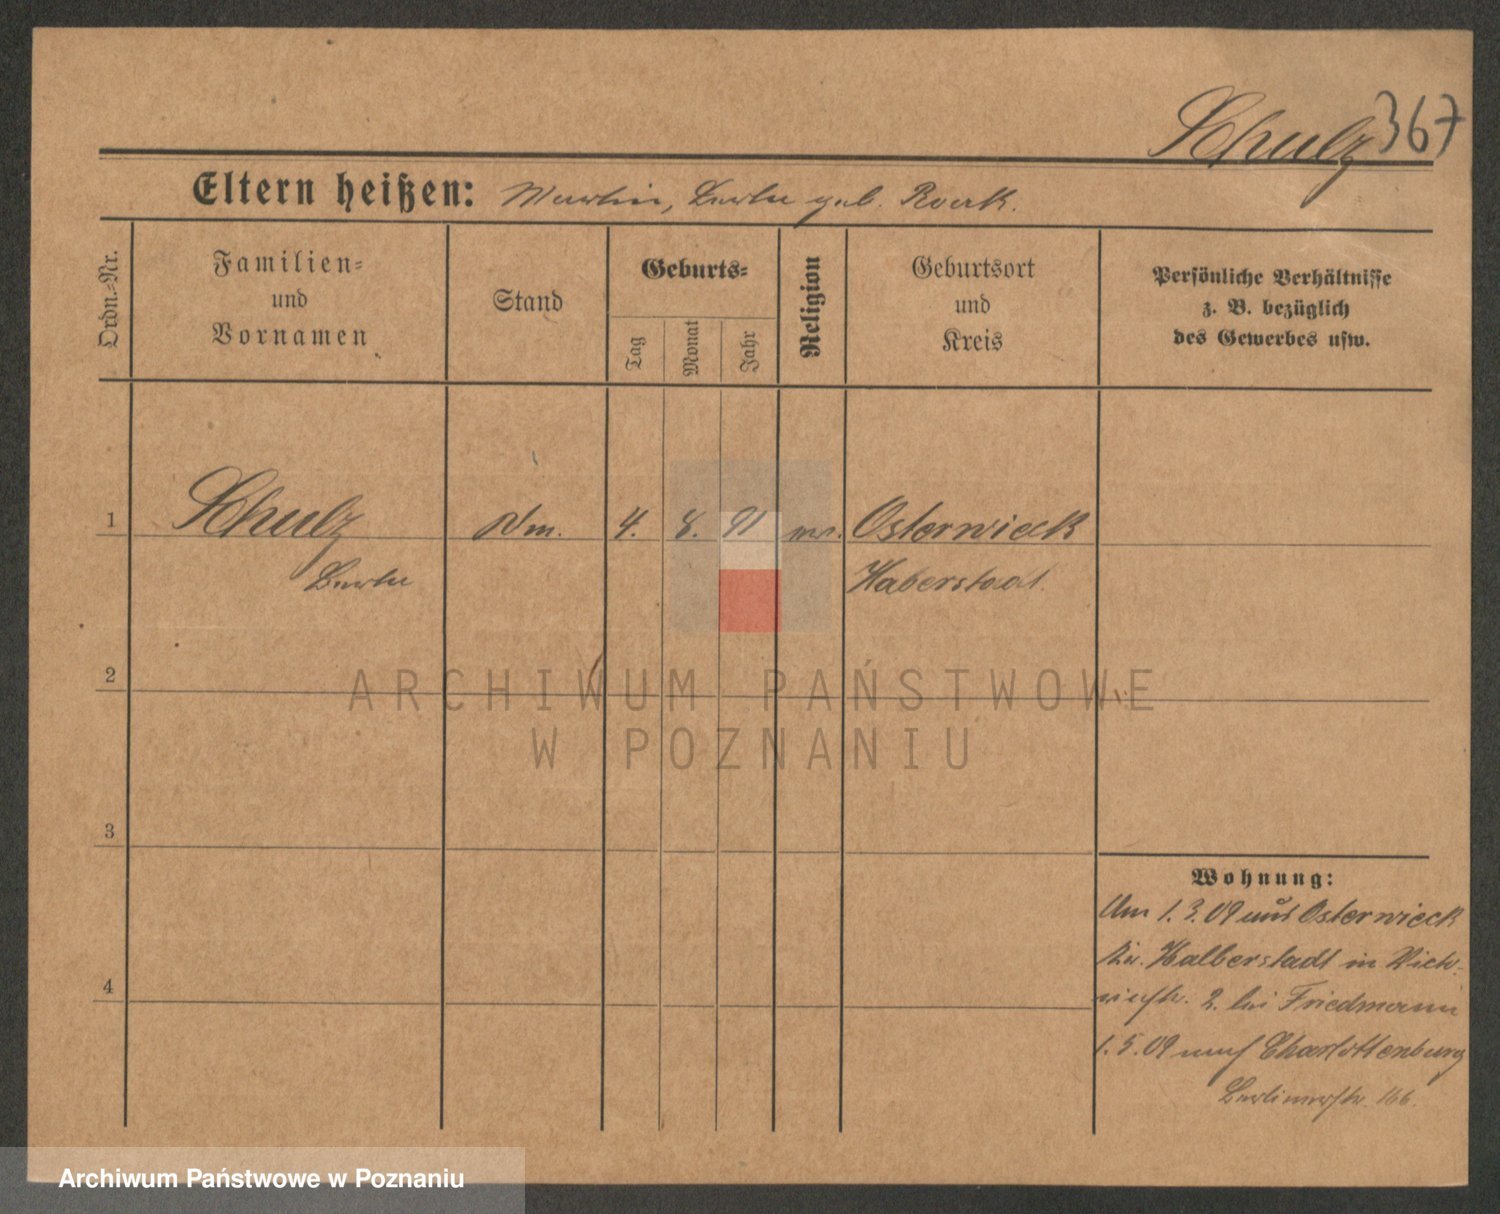 Schulz 367
Eltern heißen: Martin, Berta geb. Roack.
Ordn.-Nr.
Familien-
und
Vornamen
Stand
Geburts-
Tag
Monat
Jahr
Religion
Geburtsort
und
Kreis
Persönliche Verhältnisse
z. B. bezüglich
des Gewerbes usw.
1
Schulz
4. 8. 91
Osterwieck
Berta
Haberstadt.
2
3
4
Wohnung:
Am 1.3.09 aus Osterwieck
Kr. Halberstadt in
2. bei Friedmann
1.5.09 nach Charlottenburg
Berlinerstr. 166.
ARCHIWUM PAŃSTWOWE
W POZNANIU
Archiwum Państwowe w Poznaniu